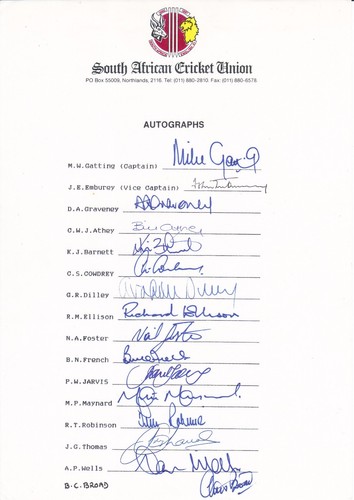 South African Cricket Union
PO Box 55009, Northlands, 2116. Tel (011) 880-2810. Fax: (011) 880-6578
AUTOGRAPHS
M.W.Gatting (Captain) Mike Gatting
J.E.Emburey (Vice Captain) John Emburey
D.A.Graveney DAGraveney
C.W.J.Athey Bill Athey
K.J.Barnett
C.S.COWDREY
G.R.Dilley Graham Dilley
R.M.Ellison Richard Ellison
N.A.Foster Neil Foster
B.N.French Bruce French
P.W.JARVIS
M.P.Maynard
R.T.Robinson
J.G.Thomas
A.P.Wells Alan Wells
B.C.BROAD Chris Broad